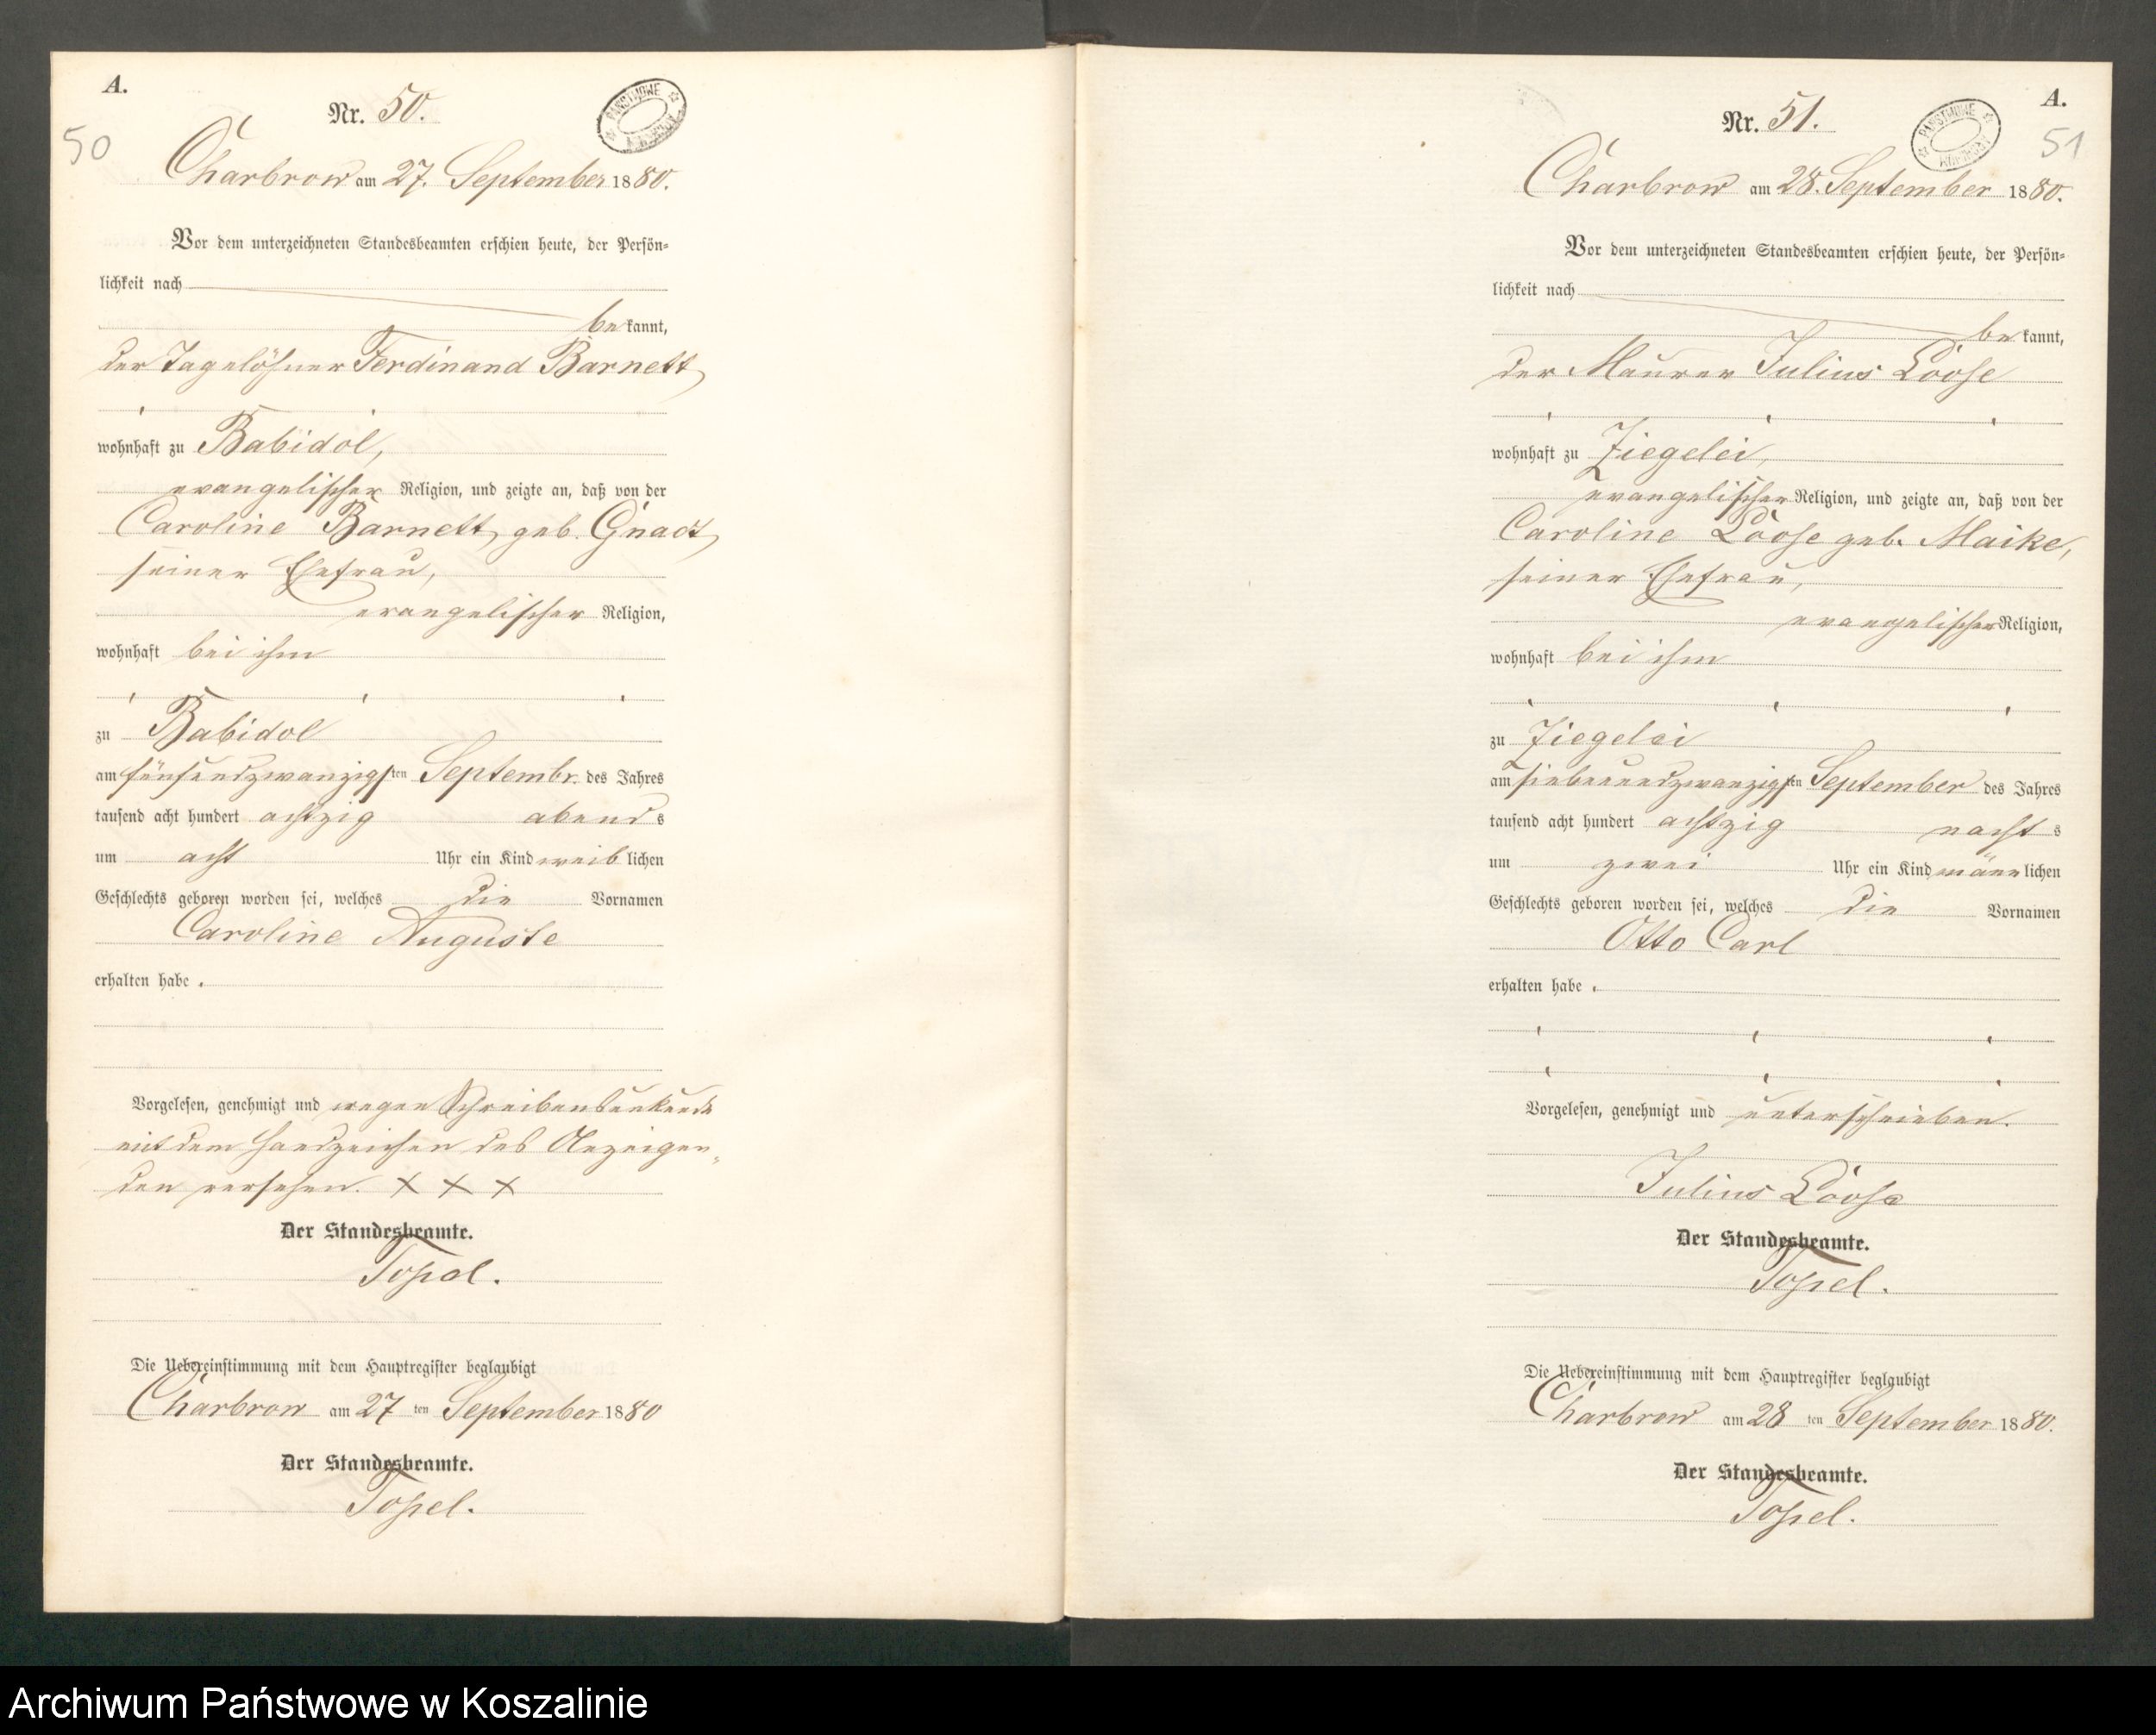 A.
Nr. 50.
50
Charbrow am 27. September 1880.
Vor dem unterzeichneten Standesbeamten erschien heute, der Persön-
lichkeit nach
bekannt,
der Tagelöhner Ferdinand Barnett,
wohnhaft zu Babidol,
evangelischer Religion, und zeigte an, daß von der
Caroline Barnett, geb. Gnadt,
seiner Ehefrau,
evangelischer Religion,
wohnhaft bei ihm
zu Babidol
am fünfundzwanzigsten Septembr. des Jahres
tausend acht hundert achtzig abends
um acht Uhr ein Kind weiblichen
Geschlechts geboren worden sei, welches die Vornamen
Caroline Auguste
erhalten habe.
Vorgelesen, genehmigt und wegen Schreibensunkunde
mit dem Handzeichen des Anzeigen-
den versehen. X X X
Der Standesbeamte.
Topel.
Die Uebereinstimmung mit dem Hauptregister beglaubigt
Charbrow am 27 ten September 1880
Der Standesbeamte.
Topel.
A.
Nr. 51.
51
Charbrow am 28. September 1880.
Vor dem unterzeichneten Standesbeamten erschien heute, der Persön-
lichkeit nach
bekannt,
der Maurer Julius Loose
wohnhaft zu Ziegelei,
evangelischer Religion, und zeigte an, daß von der
Caroline Loose geb. Maike,
seiner Ehefrau,
evangelischer Religion,
wohnhaft bei ihm
zu Ziegelei
am siebenundzwanzigsten September des Jahres
tausend acht hundert achtzig nachts
um zwei Uhr ein Kind männlichen
Geschlechts geboren worden sei, welches die Vornamen
Otto Carl
erhalten habe.
Vorgelesen, genehmigt und unterschrieben.
Julius Loose
Der Standesbeamte.
Topel.
Die Uebereinstimmung mit dem Hauptregister beglaubigt
Charbrow am 28 ten September 1880.
Der Standesbeamte.
Topel.
Archiwum Państwowe w Koszalinie